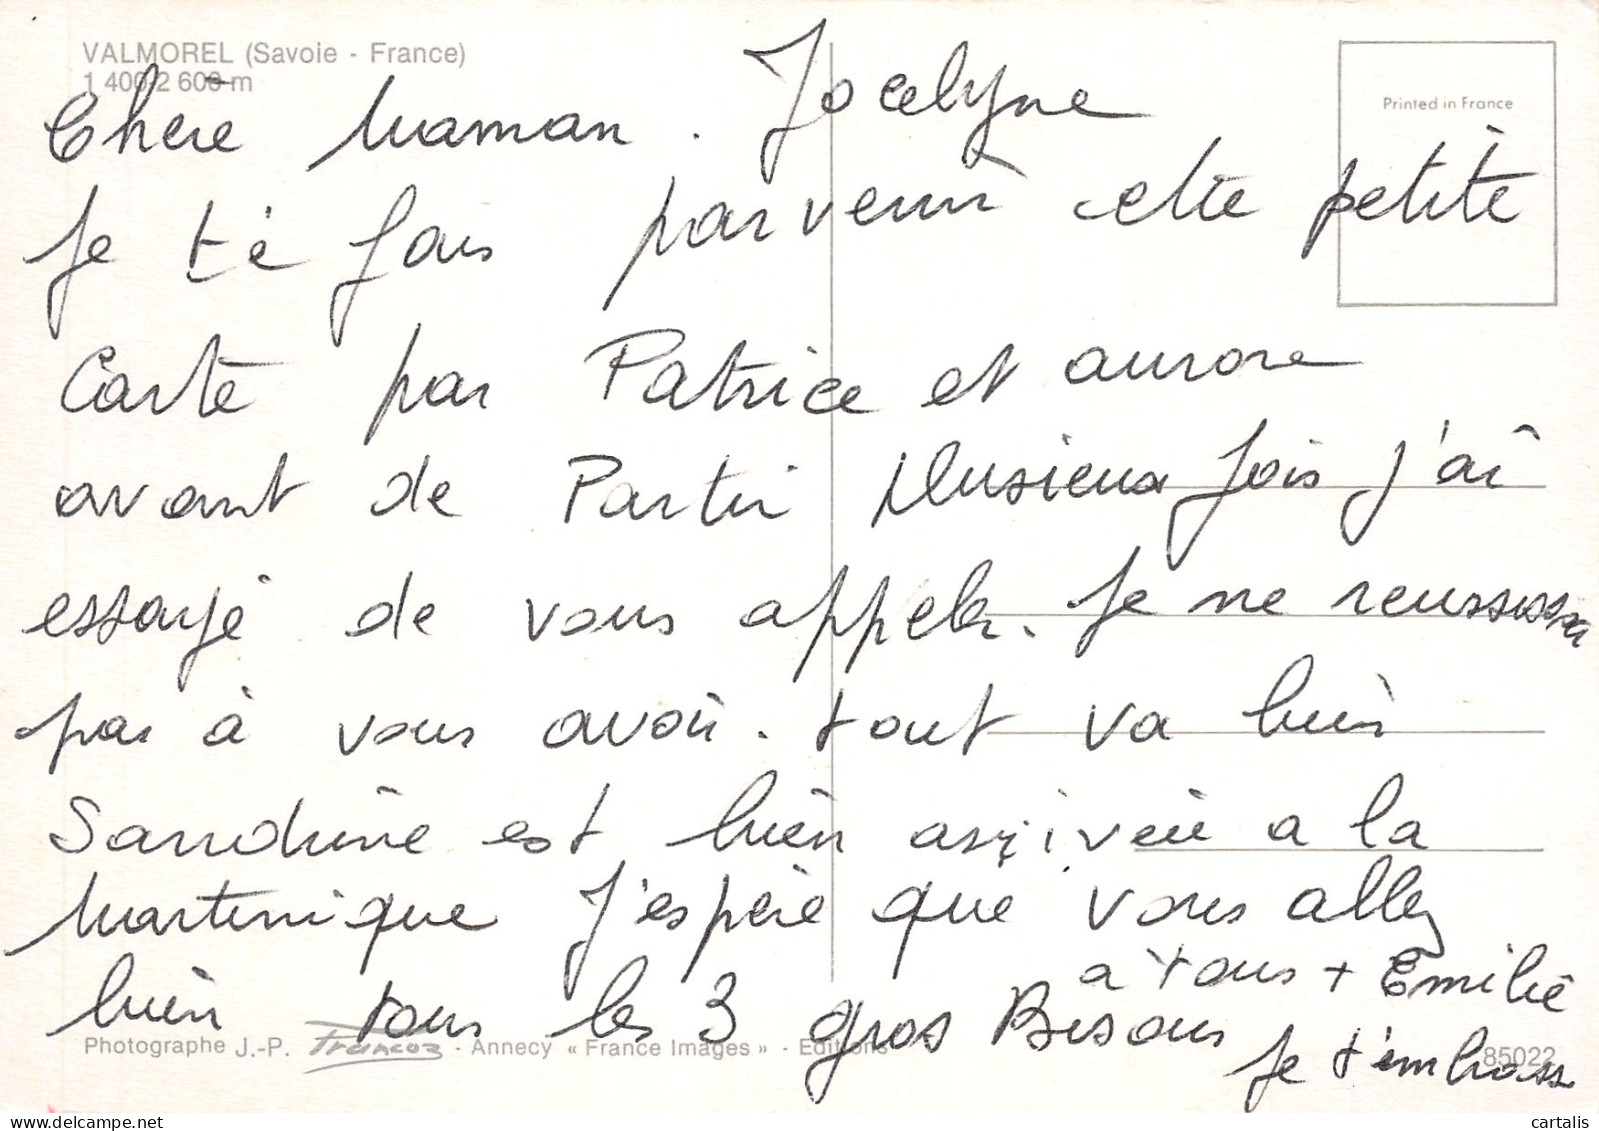 VALMOREL (Savoie - France)
1 400-2 600 m
Printed in France
Chère Maman. Jocelyne
Je t'è fais parvenir cette petite
Carte par Patrice et aurore
avant de Partir plusieux fois j'ai
essayé de vous appeler. Je ne reussissa
pas à vous avoir. tout va bien
Sandrine est bien arrivée a la
Martinique J'espère que vous allez
bien tous les 3 gros Bisous
a tous + Emilie
Je t'embrasse
Photographe J.-P. Francoz - Annecy « France Images » - Editions
85022
cartalis